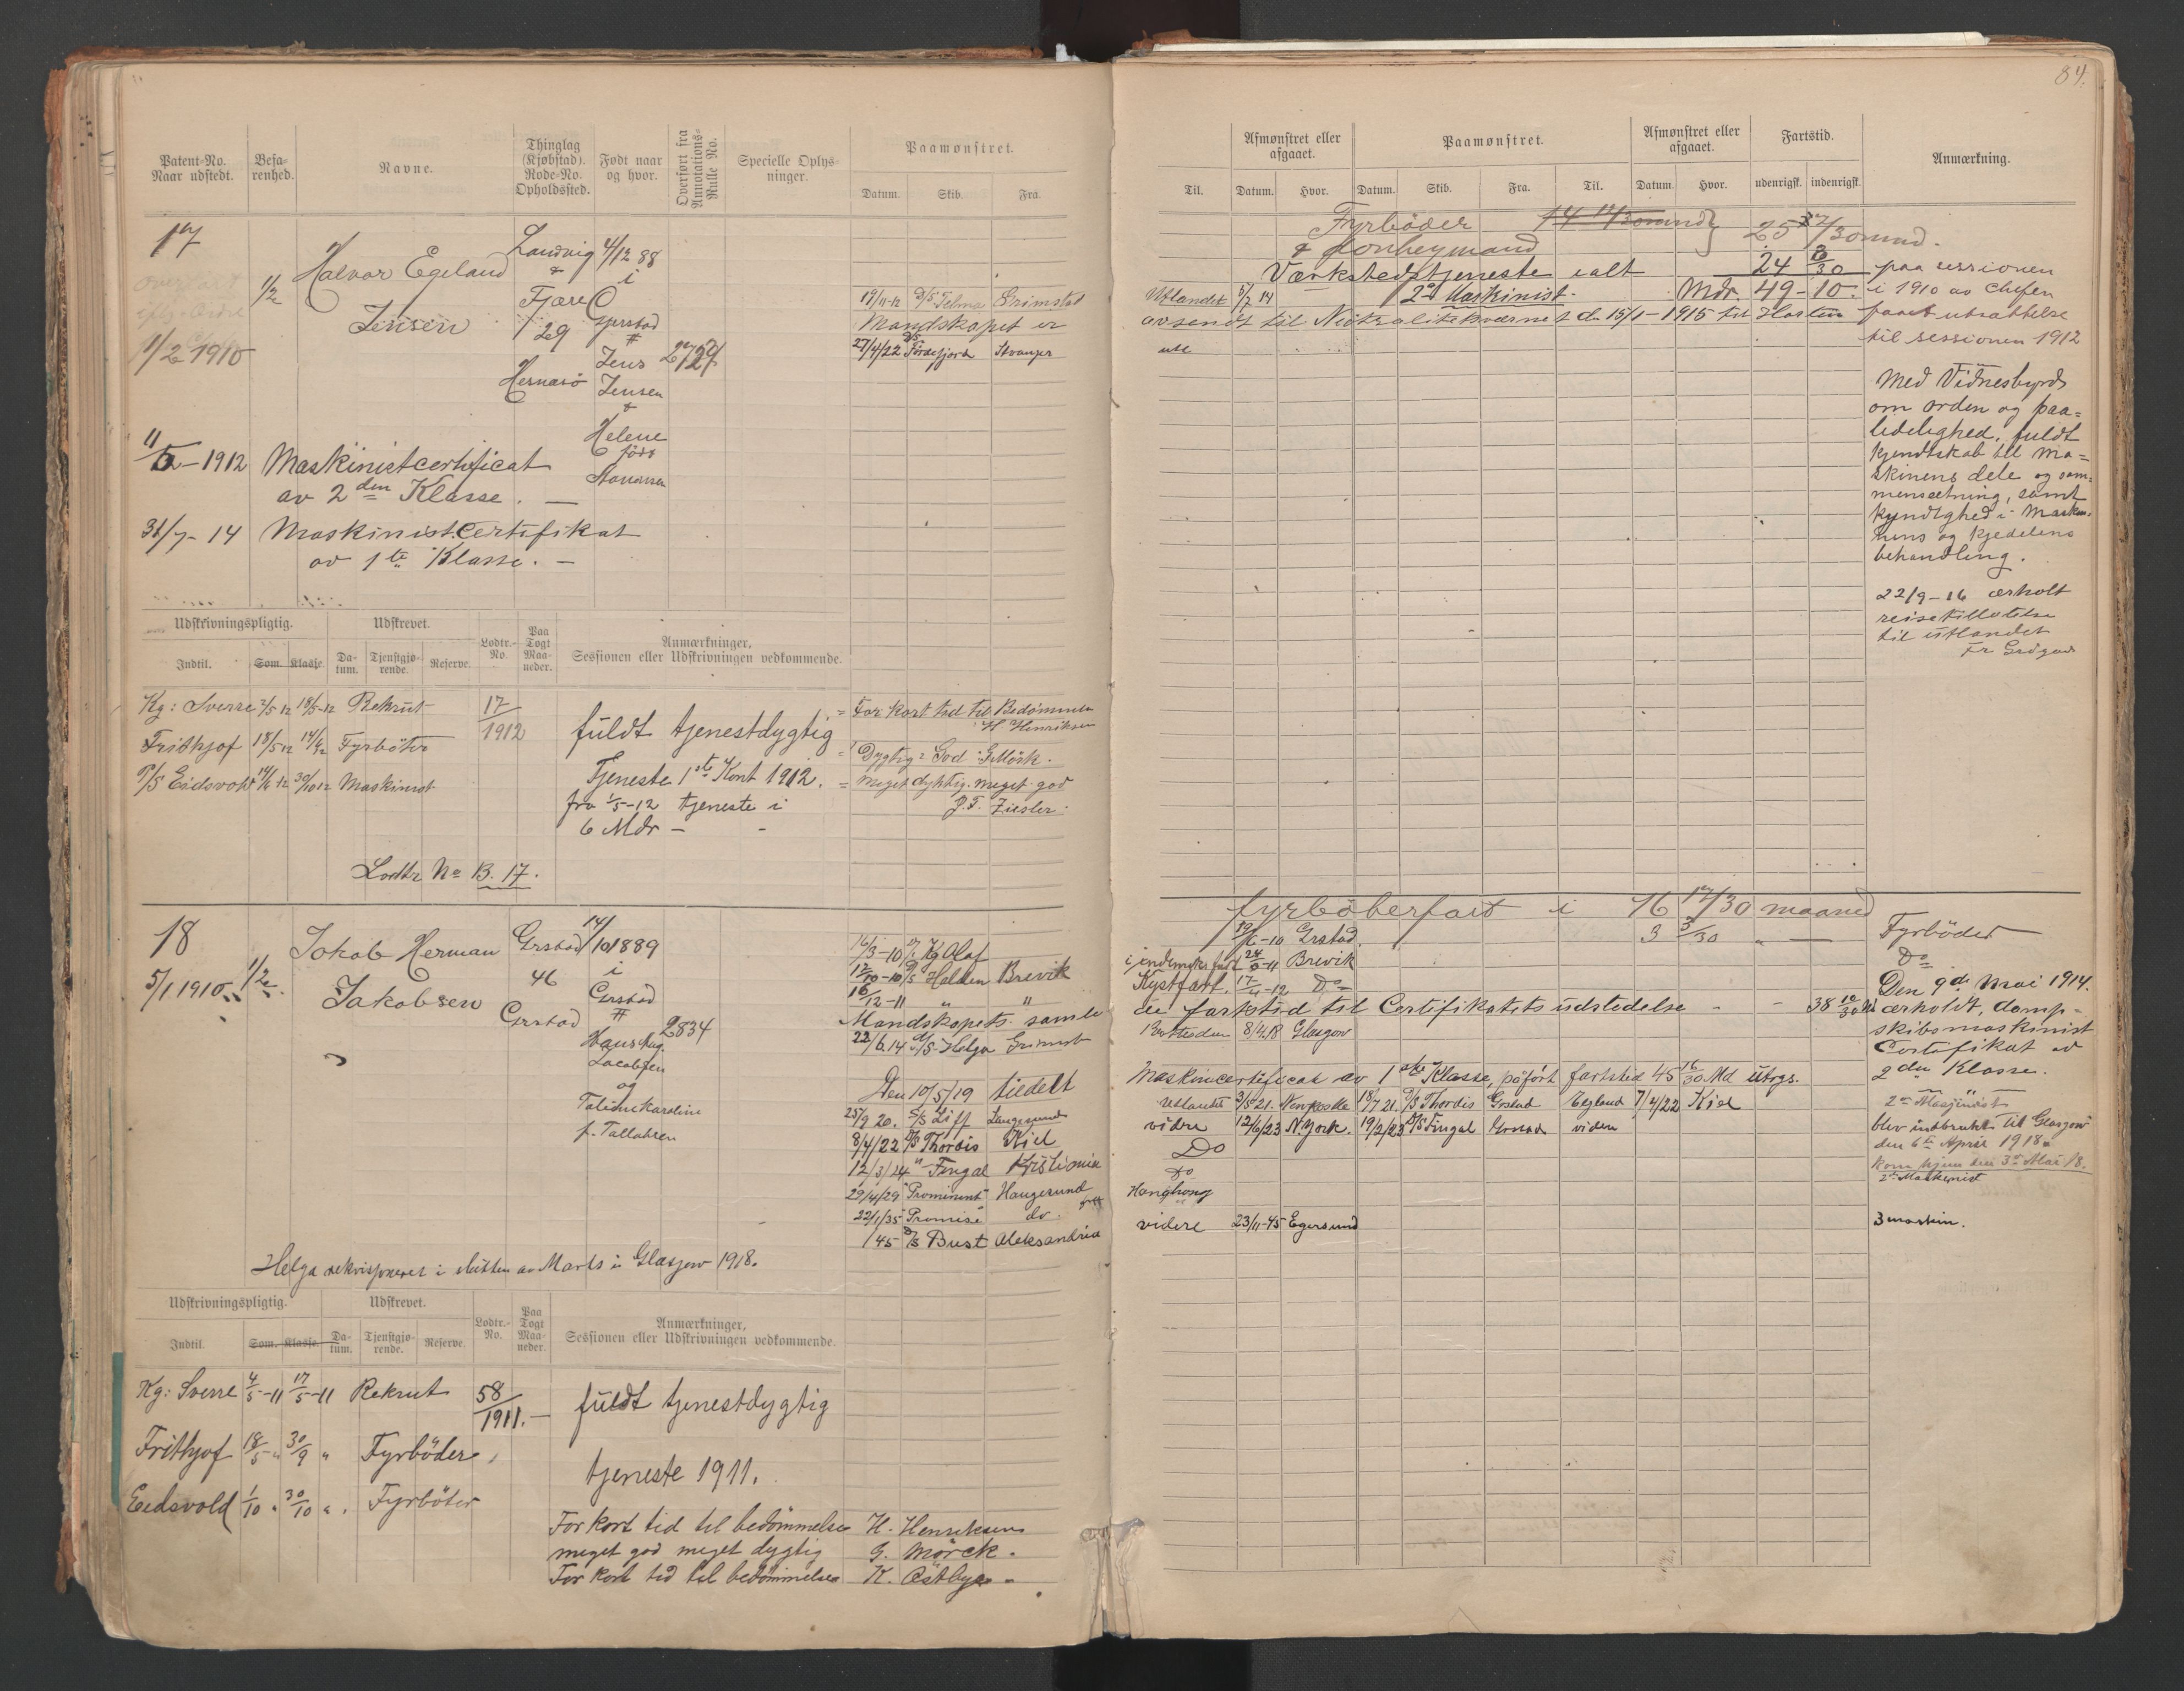 84.
Patent-No. Naar udstedt.
Besa-renhed.
Navne.
Thinglag (Kjøbstad). Rode-No. Opholdssted.
Født naar og hvor.
Overført fra Annotations-Rulle No.
Specielle Oplys-ninger.
Paamønstret.
Datum. Skib. Fra.
17
1/2
Halvor Egeland
Jensen
Landvig
Fjære
29
Hernæsö
4/12 88
i
Grstad
#
Jens
Jensen
&
Helene
född
11/2 1910
19/11-12 D/S Telma Grimstad
Mandskapet er
27/4/22 D/S Fördefjord Stvanger
11/5 - 1912 Maskinistcertificat
av 2den Klasse. —
31/7 - 14 Maskinist.Certifikat
av 1te Klasse. —
Udskrivningspligtig.
Udskrevet.
Lodtr.-No.
Paa Togt Maa-neder.
Anmærkninger, Sessionen eller Udskrivningen vedkommende.
Indtil. Som. Klasse. Da-tum. Tjenstgjø-rende. Reserve.
Kg: Sverre 2/5 12 18/5-12 Rekrut 17/1912
fuldt tjenestdygtig
= For kort tid til Bedömmelse
H Henriksen
Frithjof 18/5 12 14/6 12 Fyrböter
= Dygtig = God = G Mörk.
P/S Eidsvold 14/6 12 30/10 12 Maskinist
Tjeneste 1ste Kont 1912.
= meget dyktig. meget god
P.T. Ziesler.
fra 1/5-12 tjeneste i
6 Mdr —
Lodtr No B. 17.
18
5/1 1910
1/2
Jakob Herman
Jakobsen
Grstad
46
Grstad
14/10 1889
i
Grstad
#
Hans Aug.
Jacobsen
og
Taline Karoline
f. Tallaksen
2834
16/3-10 Kg Olaf
17/10-10 D/S Halden Brevik
16/12-11 " "
Mandskapets samle
22/6 14 D/S Helga Grimst
Den 10/5/19 tiedelt
25/9 20. S/S Liff Langesund
8/4/22 D/S Thordis Kiel
12/3/24 " Fingal Kristiania
29/4/29 "Prominent" Haugesund
22/1/35 "Promise" do.
/45 D/S Bust Aleksandria
Helga rekvisjoneret i slutten av Marts i Glasgow 1918.
Udskrivningspligtig.
Udskrevet.
Lodtr.-No.
Paa Togt Maa-neder.
Anmærkninger, Sessionen eller Udskrivningen vedkommende.
Indtil. Som. Klasse. Da-tum. Tjenstgjø-rende. Reserve.
Kg: Sverre 4/5-11 17/5-11 Rekrut 58/1911. —
fuldt tjenestdygtig
Frithjof 18/5 - " 30/9 " Fyrböder
tjeneste 1911.
Eidsvold 1/10 " 30/10 " . Fyrböter
For kort tid til bedömmelse H. Henriksen
meget god meget dygtig G. Mörck.
For kort tid til bedömmelse K. Östbye.
Afmønstret eller afgaaet.
Paamønstret.
Afmønstret eller afgaaet.
Fartstid.
Anmærkning.
Til. Datum. Hvor. Datum. Skib. Fra. Til. Datum. Hvor. udenrigsk. indenrigsk.
Fyrböder
& donkeymand
Værkstedstjeneste ialt 24
Utlandet 5/7 14 2den Maskinist Mdr. 49 - 10.
avsendt til Nöitralitetsværnet d. 15/1 - 1915 til Horten
paa sessionen
i 1910 av chefen
faaet utsættelse
til sessionen 1912
Med Vidnesbyrd
om orden og paa=
lidelighed, fuldt
kjendtskab til Ma=
skinens dele og sam=
mensætning, samt
kyndighed i Maski-
nens og kjedelens
behandling.
22/9-16 ærholt
reisetilladelse
til utlandet
fyrböderfart i 16 17/30 maaned
19/6-10 Grstad. 3 3/30 " —
Fyrböder
i indenriks fart 24/8-11 Brevik
Do
Kystfart. 17/4-12 Do
Den 9de Mai 1914.
fartstid til Certifikatets udstedelse - - 38 10/30
ærholdt, damp-
skibsmaskinist
Certifikat av
2den Klasse.
8/4.18 Glasgow
Maskincertificat av 1ste Klasse, påfört fartstid 45 16/30 Md utrgs.
2den Maskinist
Utlandet 3/5 21. 18/7 21. D/S Thordis Grstad England 7/4/22 Kiel
blev indbrakt til Glasgow
videre 12/6/23 N.York. 19/2/23 D/S Fingal Grstad videre
den 6te April 1918.
Do
kom hjem den 3de Mai 18.
Do
2den Maskinist
Hongkong
videre 23/11-45 Egersund
3 maskin.